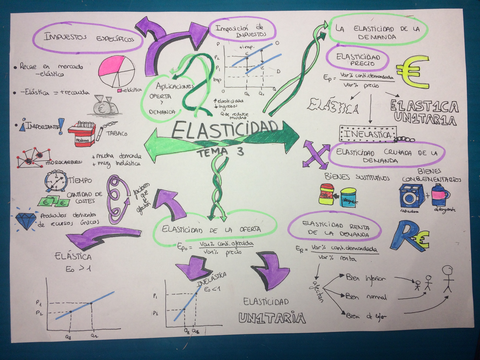 IMPUESTOS ESPECÍFICOS
Imposición de
IMPUESTOS
LA ELASTICIDAD DE LA
DEMANDA
ELASTICIDAD
PRECIO
Ep = var% cant. demandada
var% precio
ELÁSTICA
ELÁSTICA
UNITARIA
INELÁSTICA
Aplicación
OFERTA
Y
DEMANDA
ELASTICIDAD
TEMA 3
IMPORTANTE!
TABACO
HIDROCARBUROS
TIEMPO
CANTIDAD DE
COSTES
Productos derivados
de recursos únicos
ELASTICIDAD CRUZADA DE LA
DEMANDA
BIENES SUSTITUTIVOS
BIENES
COMPLEMENTARIOS
ELASTICIDAD DE LA OFERTA
Ep = var% cant. ofertada
var% precio
ELASTICIDAD RENTA
DE LA DEMANDA
ER = var% cant. demandada
var% renta
Bien inferior
Bien normal
Bien de lujo
ELÁSTICA
Eo > 1
INELÁSTICA
Eo < 1
ELASTICIDAD
UNITARIA